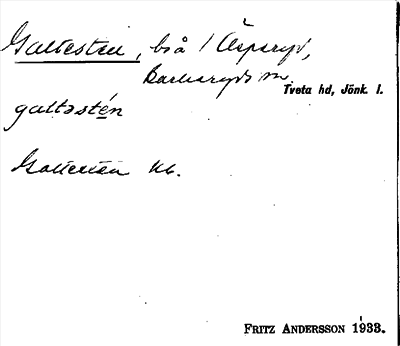 Galtesten, bså / Äsperyd,
Barkeryds sn
Tveta hd, Jönk. l.
galtəstén
Galtesten kb.
FRITZ ANDERSSON 1933.